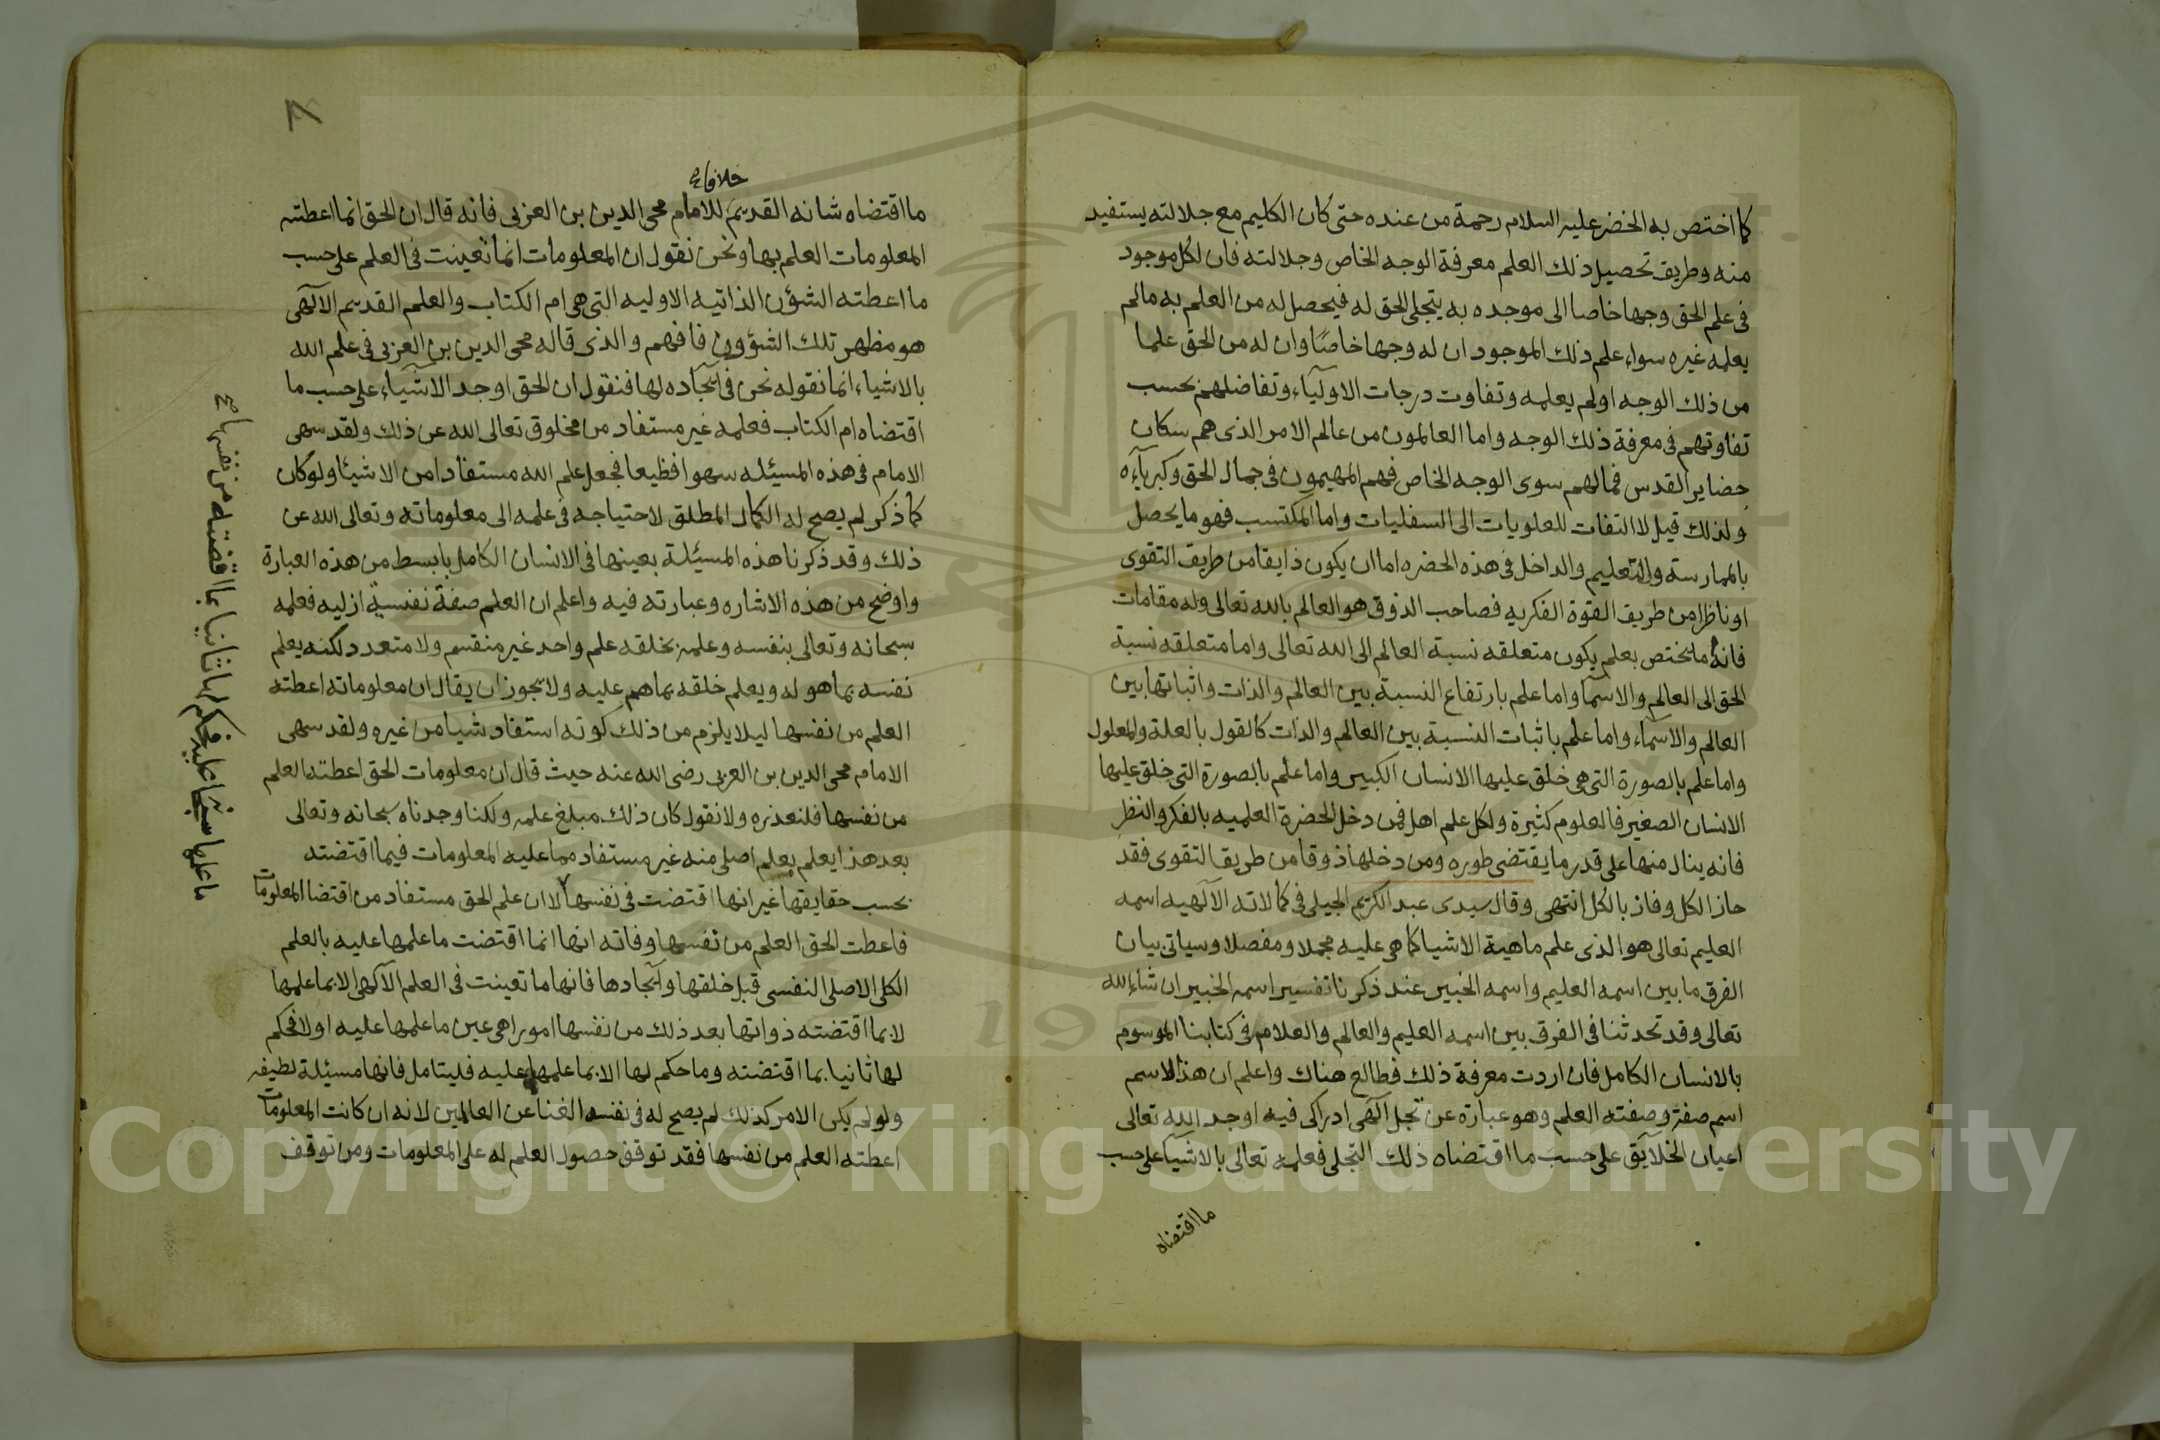 كما اختص به الخضر عليه السلام رحمة من عنده حتى كان الكليم مع جلالته يستفيد
منه وطريق تحصيل ذلك العلم معرفة الوجه الخاص وجلالته فان لكل موجود
فى علم الحق وجها خاصا الى موجده به يتجلى الحق له فيحصل له من العلم به مالم
يعلمه غيره سواء علم ذلك الموجود ان له وجها خاصًا وان له من الحق علما
من ذلك الوجه اولم يعلمه وتفاوت درجات الاوليآء وتفاضلهم بحسب
تفاوتهم فى معرفة ذلك الوجه واما العالمون من عالم الامر الذى هم سكان
حضاير القدس فما لهم سوى الوجه الخاص فهم المهيمون فى جمال الحق وكبريآءه
ولذلك قيل لا التفات للعلويات الى السفليات واما المكتسب فهو ما يحصل
بالممارسته والتعليم والداخل فى هذه الحضره اما ان يكون ذايقا من طريق التقوى
او ناظرا من طريق القوة الفكريه فصاحب الذوق هو العالم بالله تعالى وله مقامات
فانه ما يختص بعلم يكون متعلقه نسبة العالم الى الله تعالى واما متعلقه نسبة
الحق الى العالم والاسمآ واما علم بارتفاع النسبة بين العالم والذات واثباتها بين
العالم والاسمآء واما علم باثبات النسبة بين العالم والذات كالقول بالعلة والمعلول
واما علم بالصورة التى هى خلق عليها الانسان الكبير واما علم بالصورة التى خلق عليها
الانسان الصغير فالعلوم كثيرة ولكل علم اهل فمن دخل الحضرة العلميه بالفكر والنظر
فانه ينال منها على قدر ما يقتضى طوره ومن دخلها ذوقا من طريق التقوى فقد
حاز الكل وفاز بالكل انتهى وقال سيدى عبد الكريم الجيلى فى كمالاته الآلهيه اسمه
العليم تعالى هو الذى علم ماهية الاشيا كما هى عليه مجملا ومفصلا وسياتى بيان
الفرق ما بين اسمه العليم واسمه الخبير عند ذكرنا تفسير اسمه الخبير ان شاء الله
تعالى وقد تحدثنا فى الفرق بين اسمه العليم والعالم والعلام فى كتابنا الموسوم
بالانسان الكامل فان اردت معرفة ذلك فطالع هناك واعلم ان هذا الاسم
اسم صفة وصفته العلم وهو عبارة عن تجل آلهى ادراكى فيه اوجد الله تعالى
اعيان الخلآيق على حسب ما اقتضاه ذلك التجلى فعلمه تعالى بالاشيآ على حسب
ما اقتضاه
خلافا صح
ما اقتضاه شانه القديم للامام محى الدين بن العربى فانه قال ان الحق انما اعطته
المعلومات العلم بها ونحن نقول ان المعلومات انما تعينت فى العلم على حسب
ما اعطته الشؤن الذاتيه الاوليه التى هى ام الكتاب والعلم القديم الآلهى
هو مظهر تلك الشؤون فافهم والذى قاله محى الدين بن العربى فى علم الله
بالاشياء انما نقوله نحن فى ايجاده لها فنقول ان الحق اوجد الاشيآء على حسب ما
اقتضاه ام الكتاب فعلمه غير مستفاد من مخلوق تعالى الله عن ذلك ولقد سهى
الامام فى هذه المسيئله سهوا فظيعا فجعل علم الله مستفادا من الاشيئا ولو كان
كما ذكر لم يصح له الكمال المطلق لاحتياجه فى علمه الى معلوماته وتعالى الله عن
ذلك وقد ذكرنا هذه المسيئلة بعينها فى الانسان الكامل بابسط من هذه العبارة
واوضح من هذه الاشاره وعبارته فيه واعلم ان العلم صفة نفسية ازليه فعلمه
سبحانه وتعالى بنفسه وعلمه بخلقه علم واحد غير منقسم ولا متعدد لكنه يعلم
نفسه بما هو له ويعلم خلقه بماهم عليه ولا يجوز ان يقال ان معلوماته اعطته
العلم من نفسها ليلا يلزم من ذلك كونه استفاد شيا من غيره ولقد سهى
الامام محى الدين بن العربى رضى الله عنه حيث قال ان معلومات الحق اعطته العلم
من نفسها فلنعذره ولا نقول كان ذلك مبلغ علمه ولكنا وجدناه سبحانه وتعالى
بعد هذا يعلم بعلم اصلى منه غير مستفاد مما عليه المعلومات فيما اقتضته
بحسب حقايقها غير انها اقتضت فى نفسها لا ان علم الحق مستفاد من اقتضا المعلومات
فاعطت الحق العلم من نفسها وفاته انها انما اقتضت ما علمها عليه بالعلم
الكلى الاصلى النفسى قبل خلقها وآيجادها فانها ما تعينت فى العلم الآلهى الا بما علمها
لا بما اقتضته ذواتها بعد ذلك من نفسها امورا هى عين ما علمها عليه اولا فحكم
لها ثانيا بما اقتضته وما حكم لها الا بما علمها عليه فليتامل فانها مسيئلة لطيفه
ولولم يكن الامر كذلك لم يصح له فى نفسه الغنا عن العالمين لانه ان كانت المعلومات
اعطته العلم من نفسها فقد توقف حصول العلم له على المعلومات ومن توقف
Copyright © King Saud University